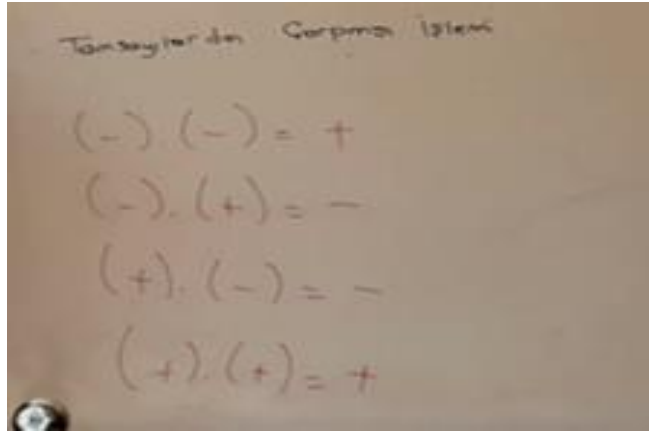 Tamsayılarda Çarpma İşlemi
(-).(-)= +
(-).(+)= -
(+).(-)= -
(+).(+)= +